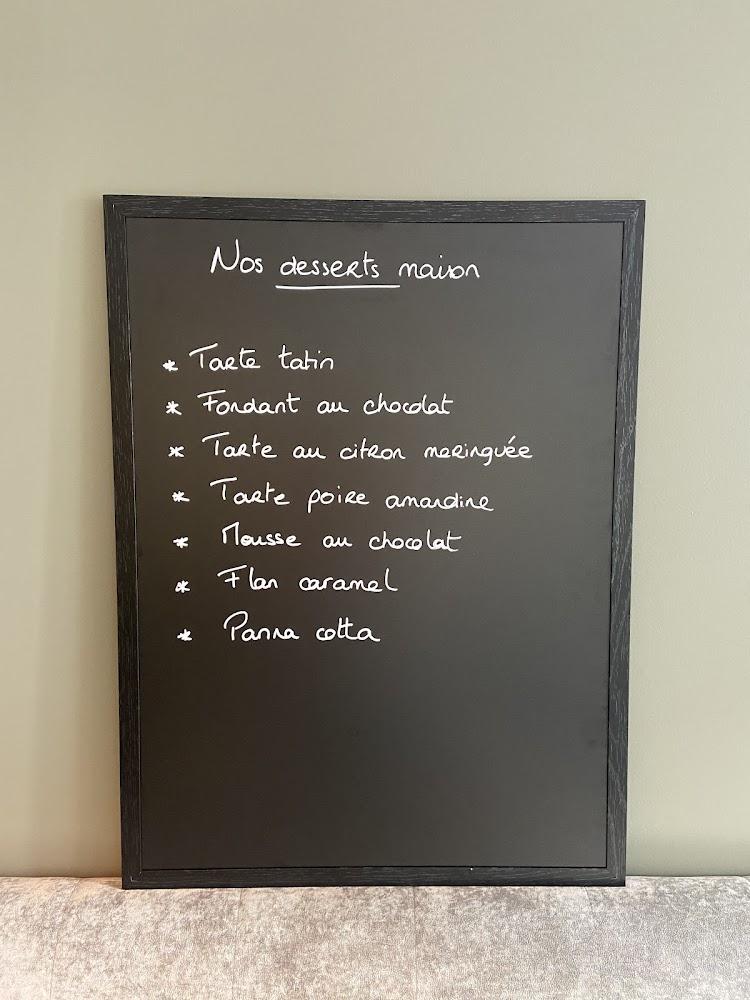 Nos desserts maison
* Tarte tatin
* Fondant au chocolat
* Tarte au citron meringuée
* Tarte poire amandine
* Mousse au chocolat
* Flan caramel
* Panna cotta